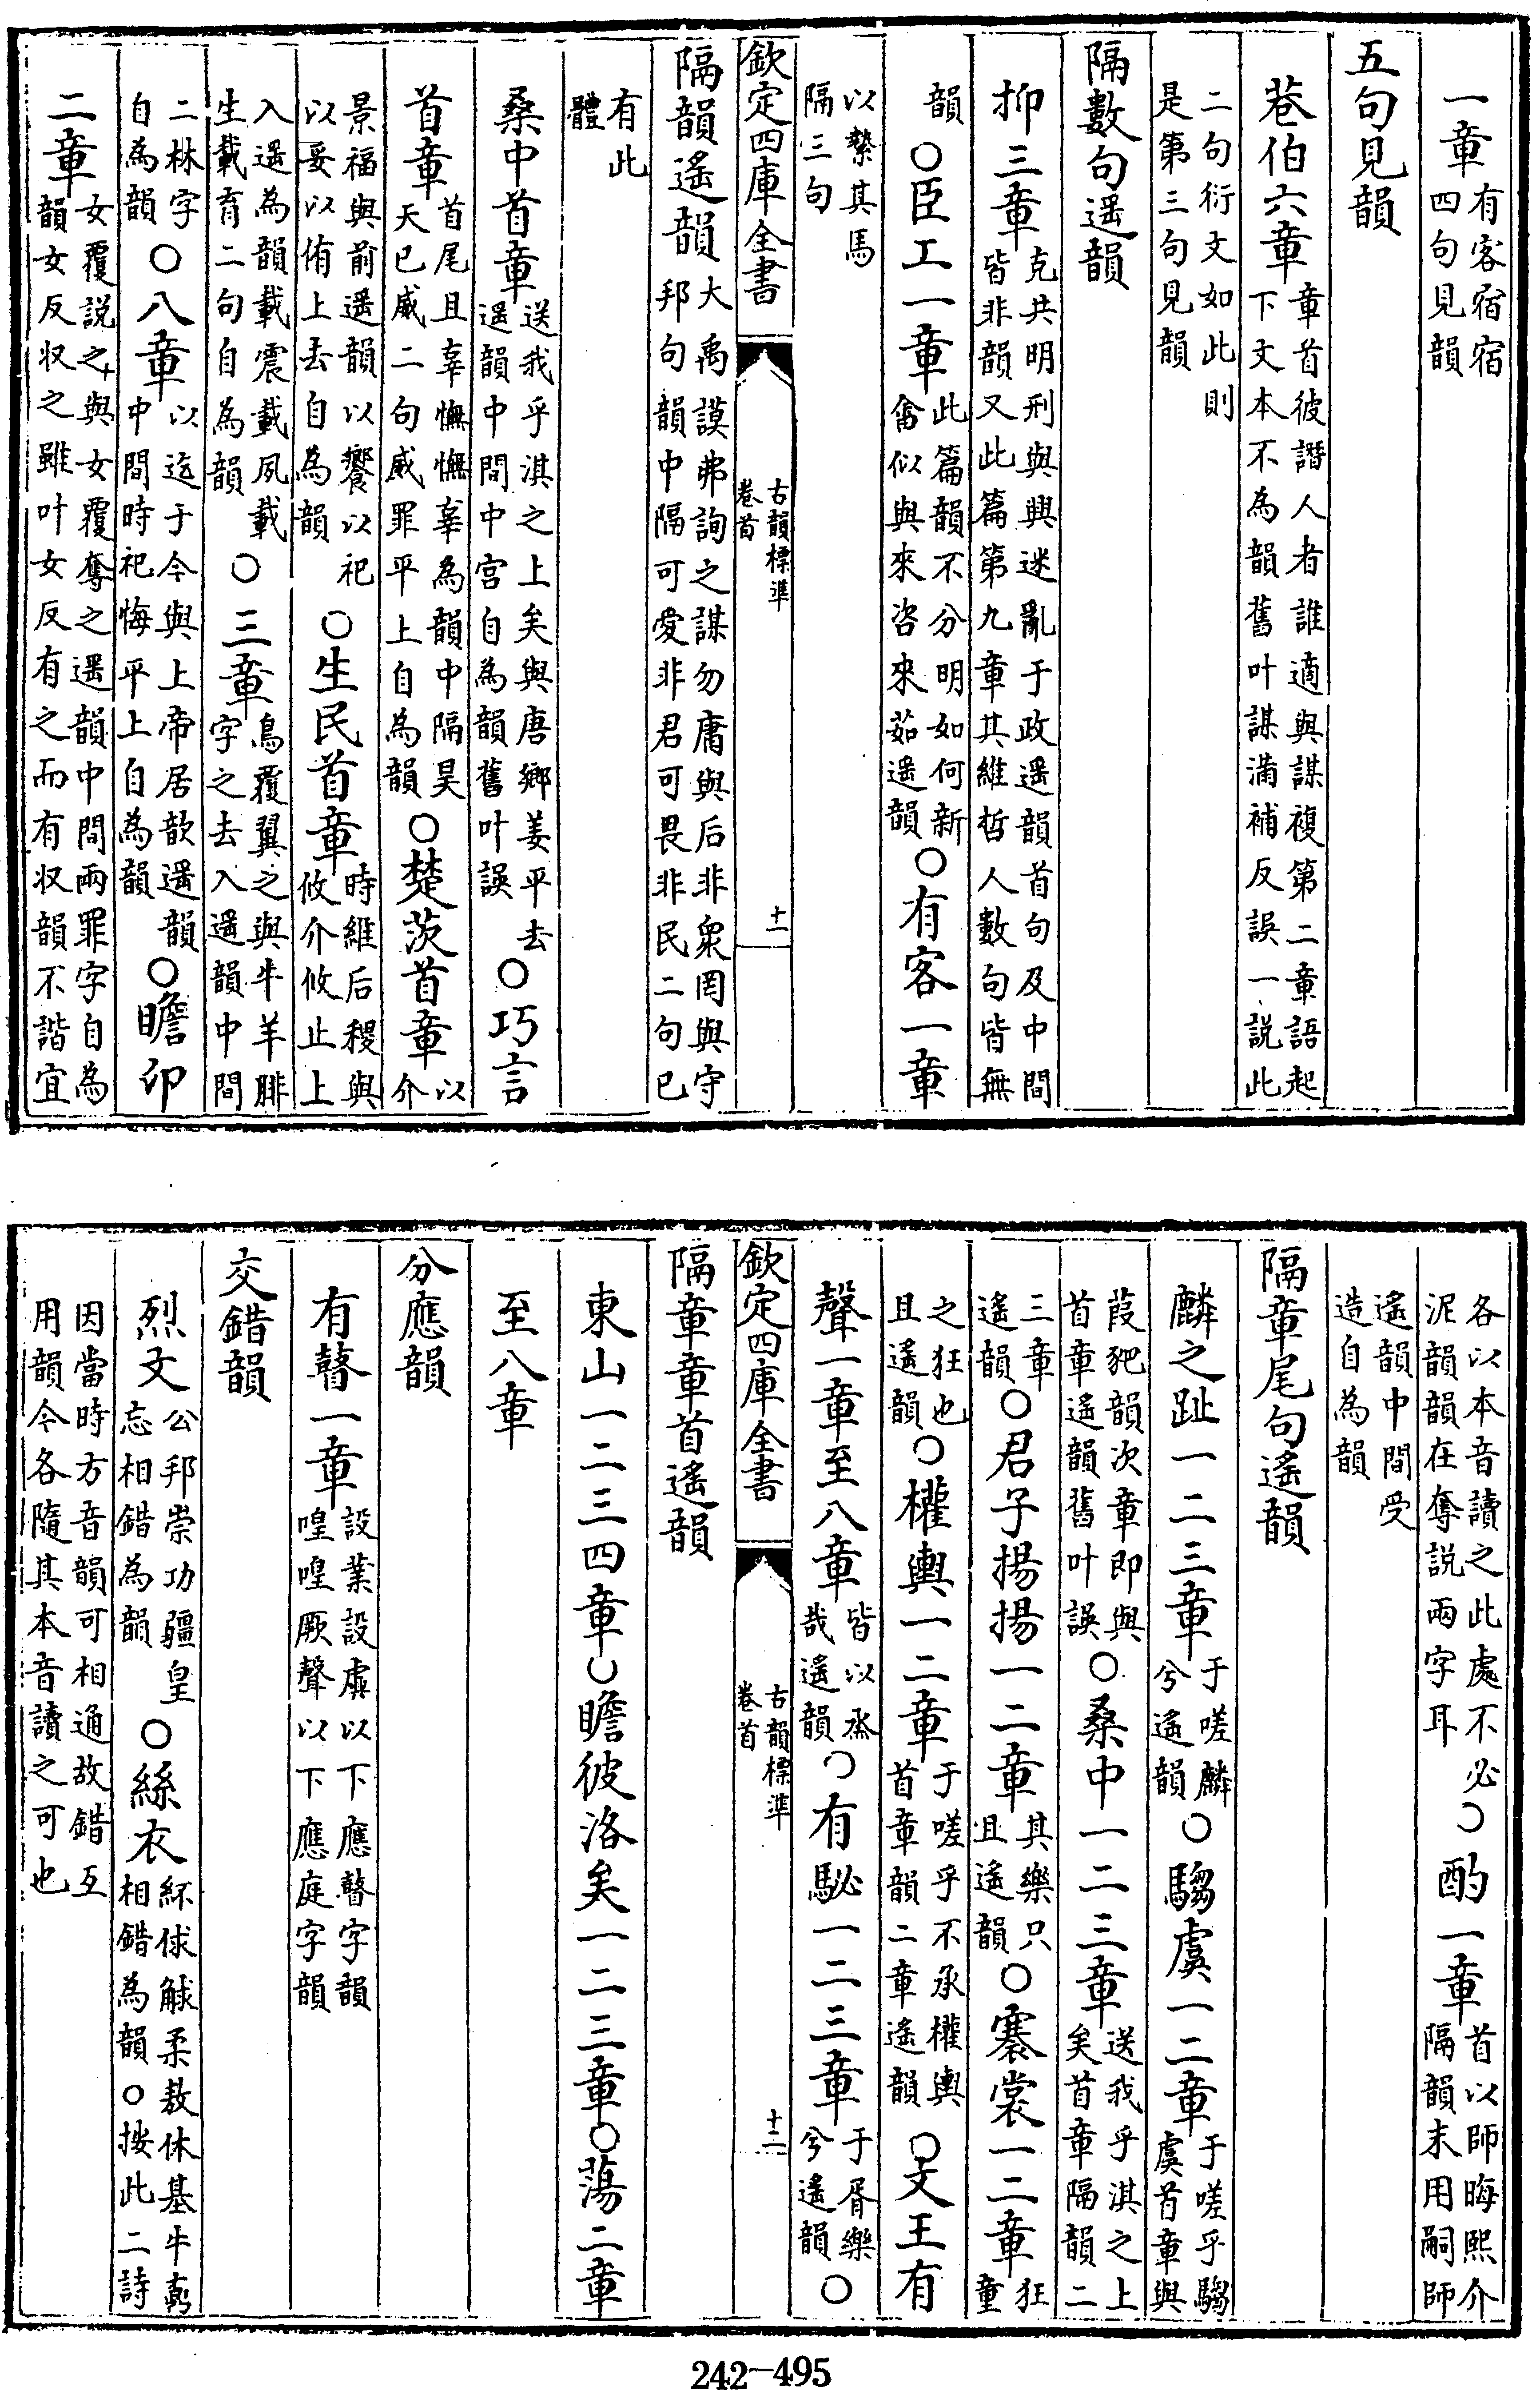 一章有客宿宿四句見韻
五句見韻
巷伯六章章首彼譖人者誰適與謀複第二章語起下文本不為韻舊叶謀滿補反誤一説此
二句衍文如此則是第三句見韻
隔數句遥韻
抑三章克共明刑與興迷亂于政遥韻首句及中間皆非韻又此篇第九章其維哲人數句皆無
韻○臣工一章此篇韻不分明如何新畬似與來咨來茹遥韻○有客一章
以縶其馬隔三句
欽定四庫全書
古韻標準卷首
十一
隔韻遥韻大禹謨弗詢之謀勿庸與后非衆罔與守邦句韻中隔可愛非君可畏非民二句已
有此體
桑中首章送我乎淇之上矣與唐鄉姜平去遥韻中間中宫自為韻舊叶誤○巧言
首章首尾且辜憮憮辜為韻中隔昊天已威二句威罪平上自為韻○楚茨首章以介
景福與前遥韻以饗以祀以妥以侑上去自為韻○生民首章時維后稷與攸介攸止上
入遥為韻載震載夙載生載育二句自為韻○三章鳥覆翼之與牛羊腓字之去入遥韻中間
二林字自為韻○八章以迄于今與上帝居歆遥韻中間時祀悔平上自為韻○瞻卬
二章女覆説之與女覆奪之遥韻中間兩罪字自為韻女反収之雖叶女反有之而有収韻不諧宜
各以本音讀之此處不必泥韻韻在奪説兩字耳○酌一章首以師晦熙介隔韻末用嗣師
遙韻中間受造自為韻
隔章尾句遙韻
麟之趾一二三章于嗟麟兮遙韻○騶虞一二章于嗟乎騶虞首章與
葭豝韻次章即與首章遙韻舊叶誤○桑中一二三章送我乎淇之上矣首章隔韻二
三章遙韻○君子揚揚一二章其樂只且遙韻○褰裳一二章狂童
之狂也且遙韻○權輿一二章于嗟乎不承權輿首章韻二章遙韻○文王有
聲一章至八章皆以烝哉遙韻○有駜一二三章于胥樂兮遙韻○
欽定四庫全書
古韻標準卷首
十二
隔章章首遙韻
東山一二三四章○瞻彼洛矣一二三章○蕩二章
至八章
分應韻
有瞽一章設業設虡以下應瞽字韻喤喤厥聲以下應庭字韻
交錯韻
烈文公邦崇功疆皇忘相錯為韻○絲衣紑俅觩柔敖休基牛鼒相錯為韻○按此二詩
因當時方音韻可相通故錯互用韻今各隨其本音讀之可也
242-495